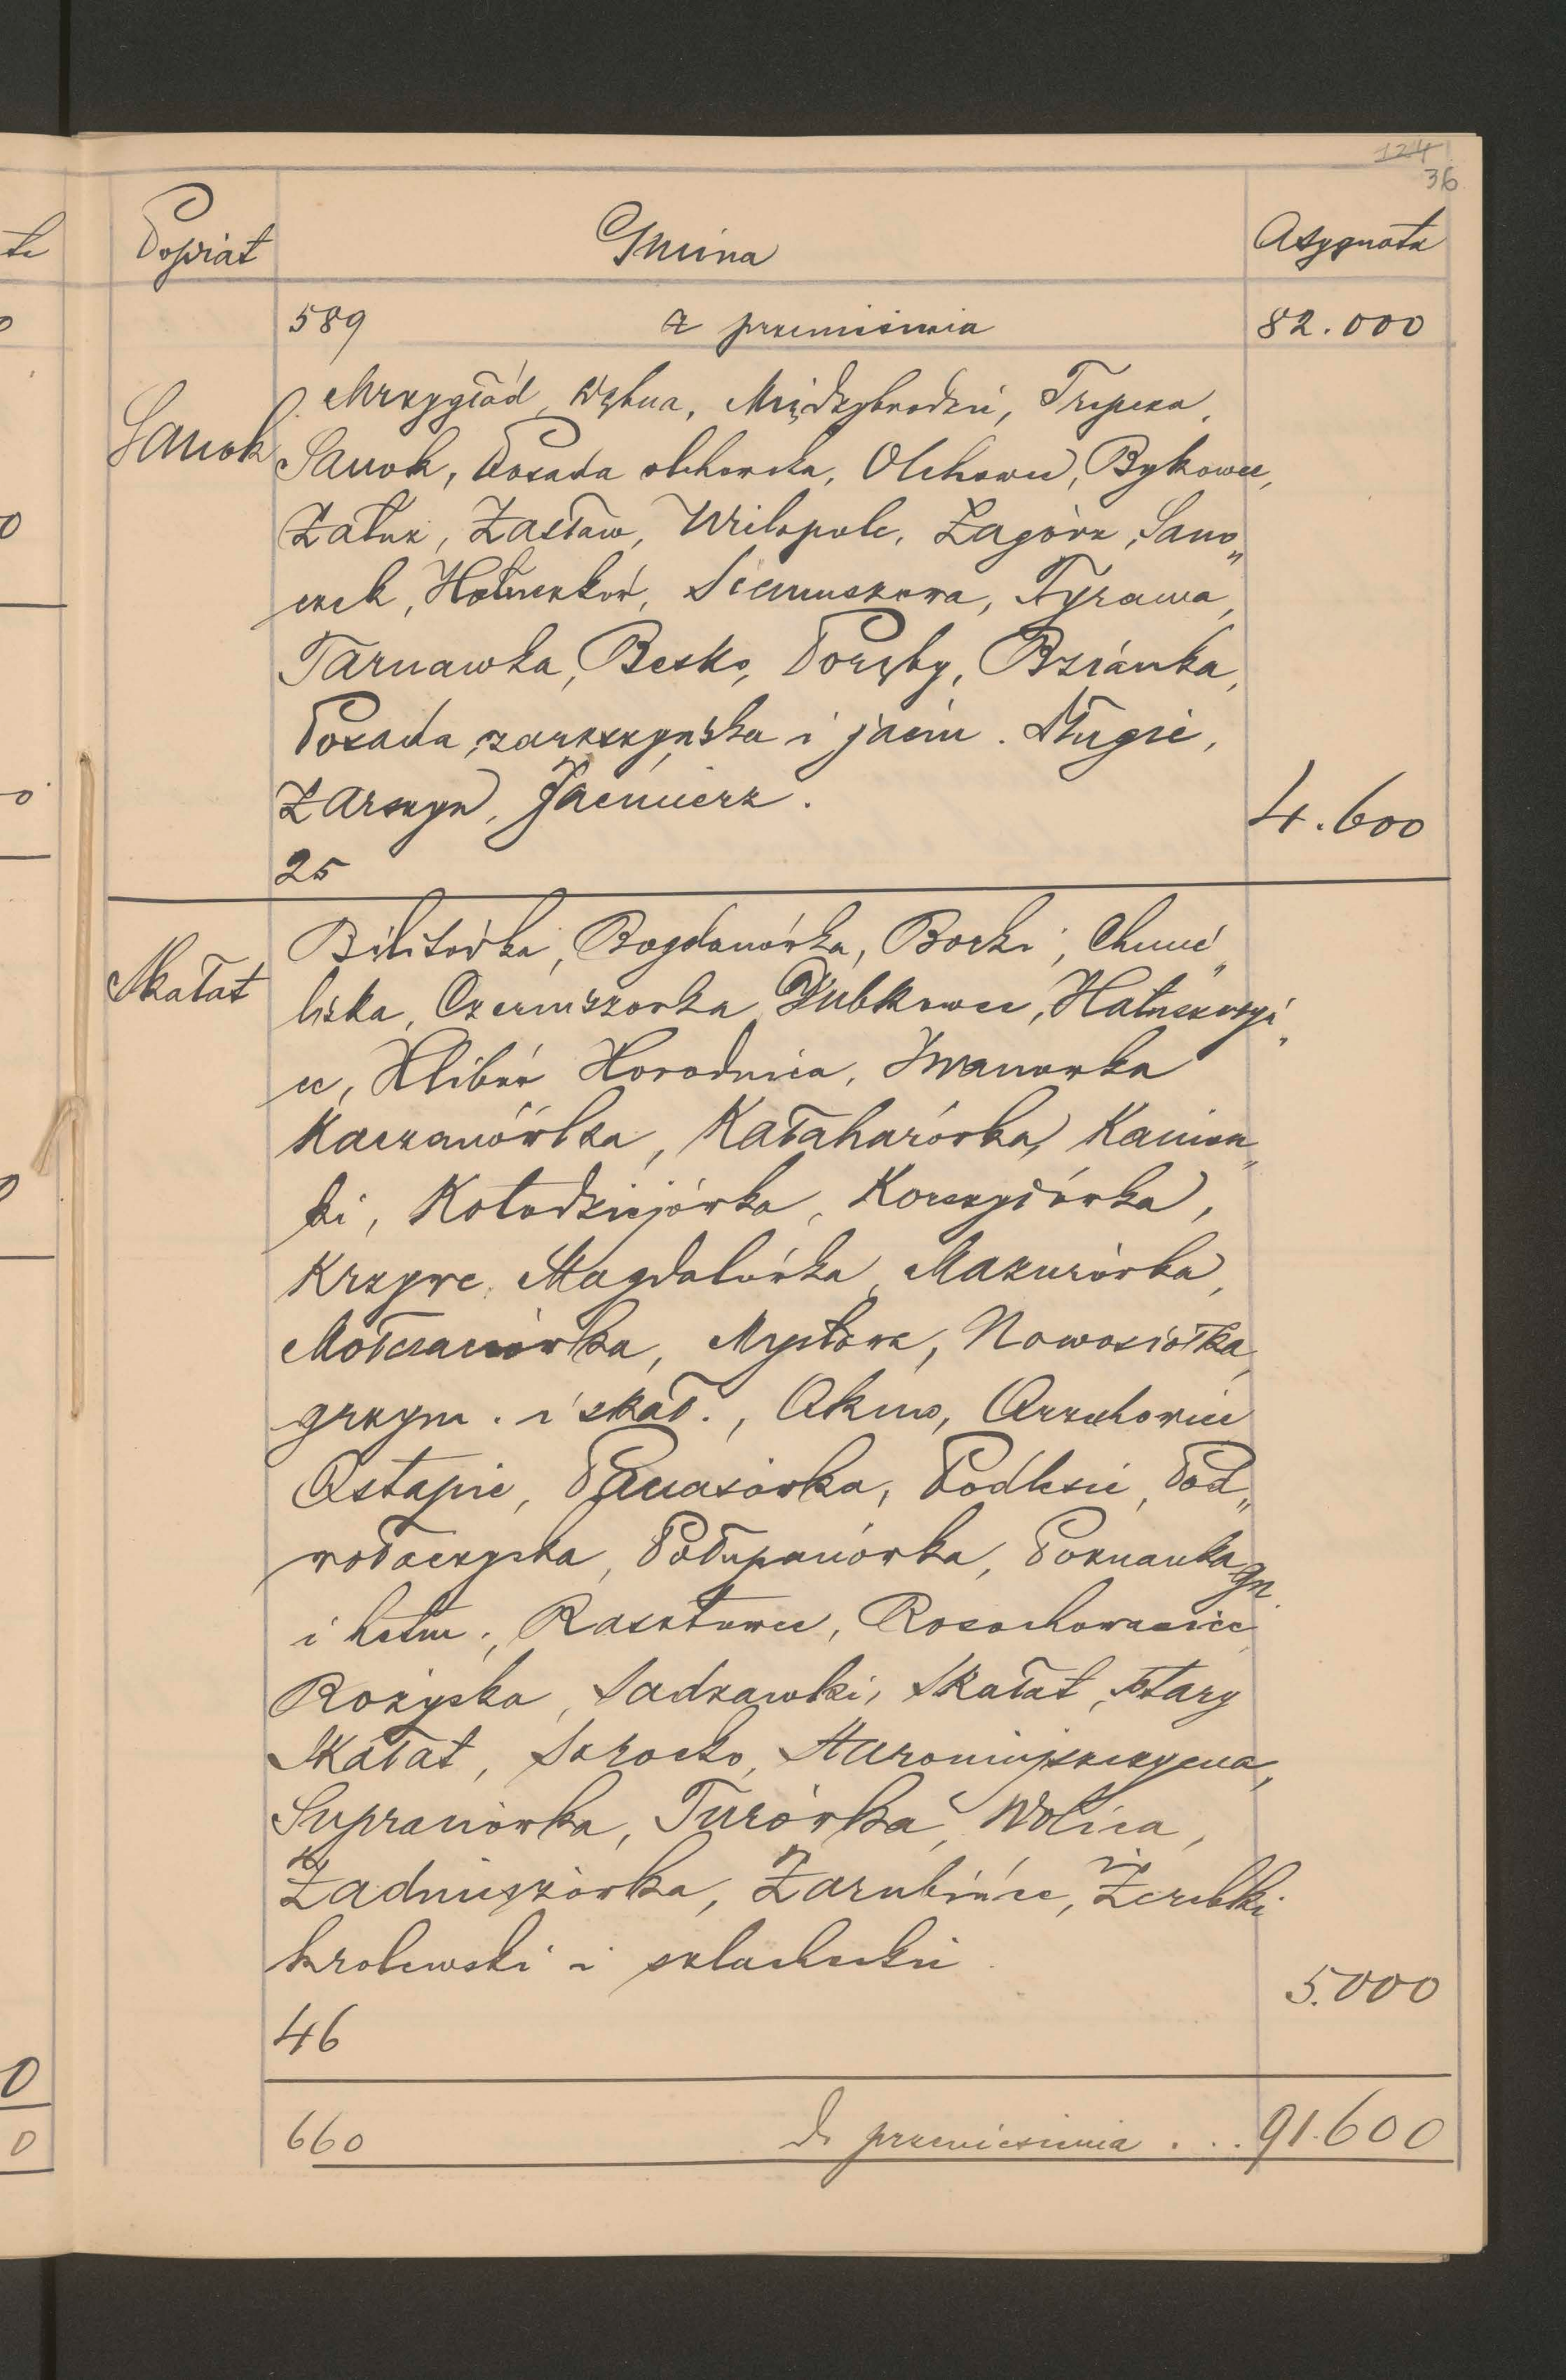 124
36
Powiat Gmina Asygnata
589 z przeniesienia 82.000
Sanok Mrzygłód, Dębna, Międzybrodzie, Trepcza,
Sanok, Posada olchowska, Olchowce, Bykowce,
Załuż, Zasław, Wielopole, Zagórz, Sano„
czek, Hołuczków, Siemuszowa, Tyrawa,
Tarnawka, Besko, Poręby, Bzianka,
Posada zarszyńska i jaćm. Długie,
Zarszyn, Jaćmierz.
4.600
25
Skałat Bilitówka, Bogdanówka, Borki, Chmie„
liska, Czerniszowka Dubkowce, Hałuszczyń„
ce, Hlibów Horodnica, Iwanowka
Kaczanówka, Kałaharówka, Kamion„
ki, Kołodziejówka, Korszyłówka,
Krzywe, Magdalówka, Mazurówka,
Mołczanówka, Mysłowa, Nowosiółka
grzym. i skał., Okno, Orzechowiec
Ostapie, Panasówka, Podlesie, Pod„
wołoczyska, Połupanówka, Poznanka gn.
i hetm., Rasztowce, Rosochowaciec
Rożyska, Sadzawki, Skałat, Stary
Skałat, Sorocko, Staromiejszczyzna,
Supranówka, Turówka, Wolica,
Zadniszówka, Zarubińce, Żerebki
krolewski i szlacheckie
5.000
46
660 do przeniesienia ... 91.600